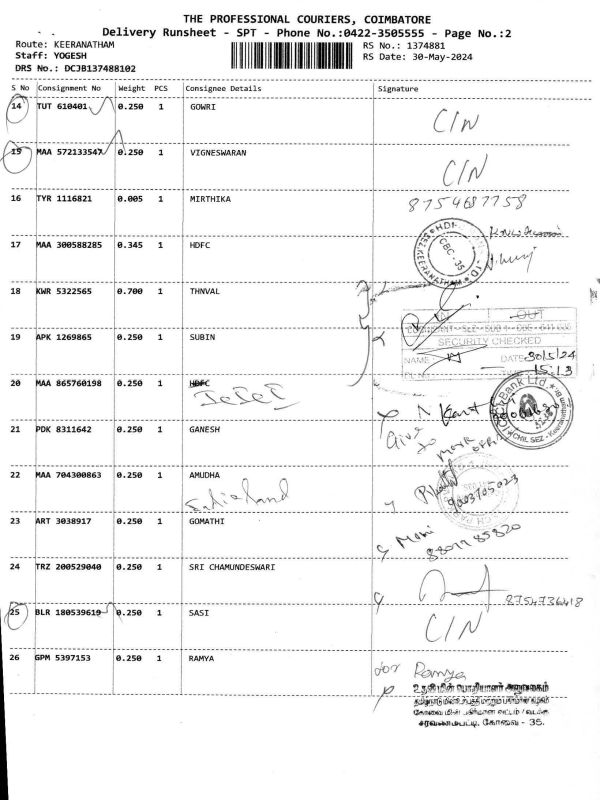 THE PROFESSIONAL COURIERS, COIMBATORE
Delivery Runsheet - SPT - Phone No.:0422-3505555 - Page No.:2
Route: KEERANATHAM
RS No.: 1374881
Staff: YOGESH
RS Date: 30-May-2024
DRS No.: DCJB137488102
S No Consignment No Weight PCS Consignee Details Signature
14 TUT 610401 0.250 1 GOWRI
C/N
15 MAA 572133547 0.250 1 VIGNESWARAN
C/N
16 TYR 1116821 0.005 1 MIRTHIKA
8754687758
17 MAA 300588285 0.345 1 HDFC
CBC-35
18 KWR 5322565 0.700 1 THNVAL
IN OUT
19 APK 1269865 0.250 1 SUBIN
SECURITY CHECKED
NAME DATE 30/5/24
15:13
20 MAA 865760198 0.250 1 HDFC
ICICI
Bank Ltd.
21 PDK 8311642 0.250 1 GANESH
CHIL SEZ - Keeranatham
22 MAA 704300863 0.250 1 AMUDHA
9003705023
23 ART 3038917 0.250 1 GOMATHI
Mani
24 TRZ 200529040 0.250 1 SRI CHAMUNDESWARI
8754736418
25 BLR 180539619 0.250 1 SASI
C/N
26 GPM 5397153 0.250 1 RAMYA
for Ramya
உதவி மின் பொறியாளர் அலுவலகம்
சரவணம்பட்டி, கோவை - 35.